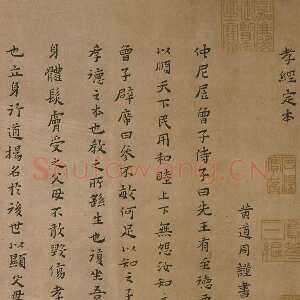 孝經定本
黃道周謹書
仲尼居曾子侍子曰先王有至德
以順天下民用和睦上下無怨汝知
曾子辟席曰參不敏何足以知之子
孝德之本也教之所繇生也復坐吾
身體髮膚受之父母不敢毀傷孝
也立身行道揚名於後世以顯父母